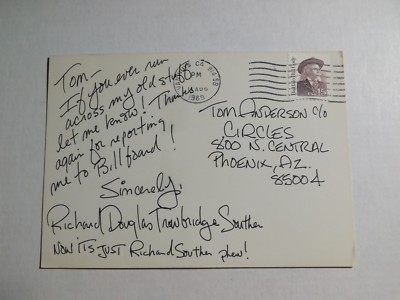 Tom-
If you ever run
across my old stuff
let me know! Thanks
again for reporting
me to Billboard!
Sincerely,
Richard Douglas Trowbridge Souther
NOW ITS JUST Richard Souther phew!
CA
PM
AUG
1989
15
TOM ANDERSON c/o
CIRCLES
800 N. CENTRAL
PHOENIX, AZ.
85004